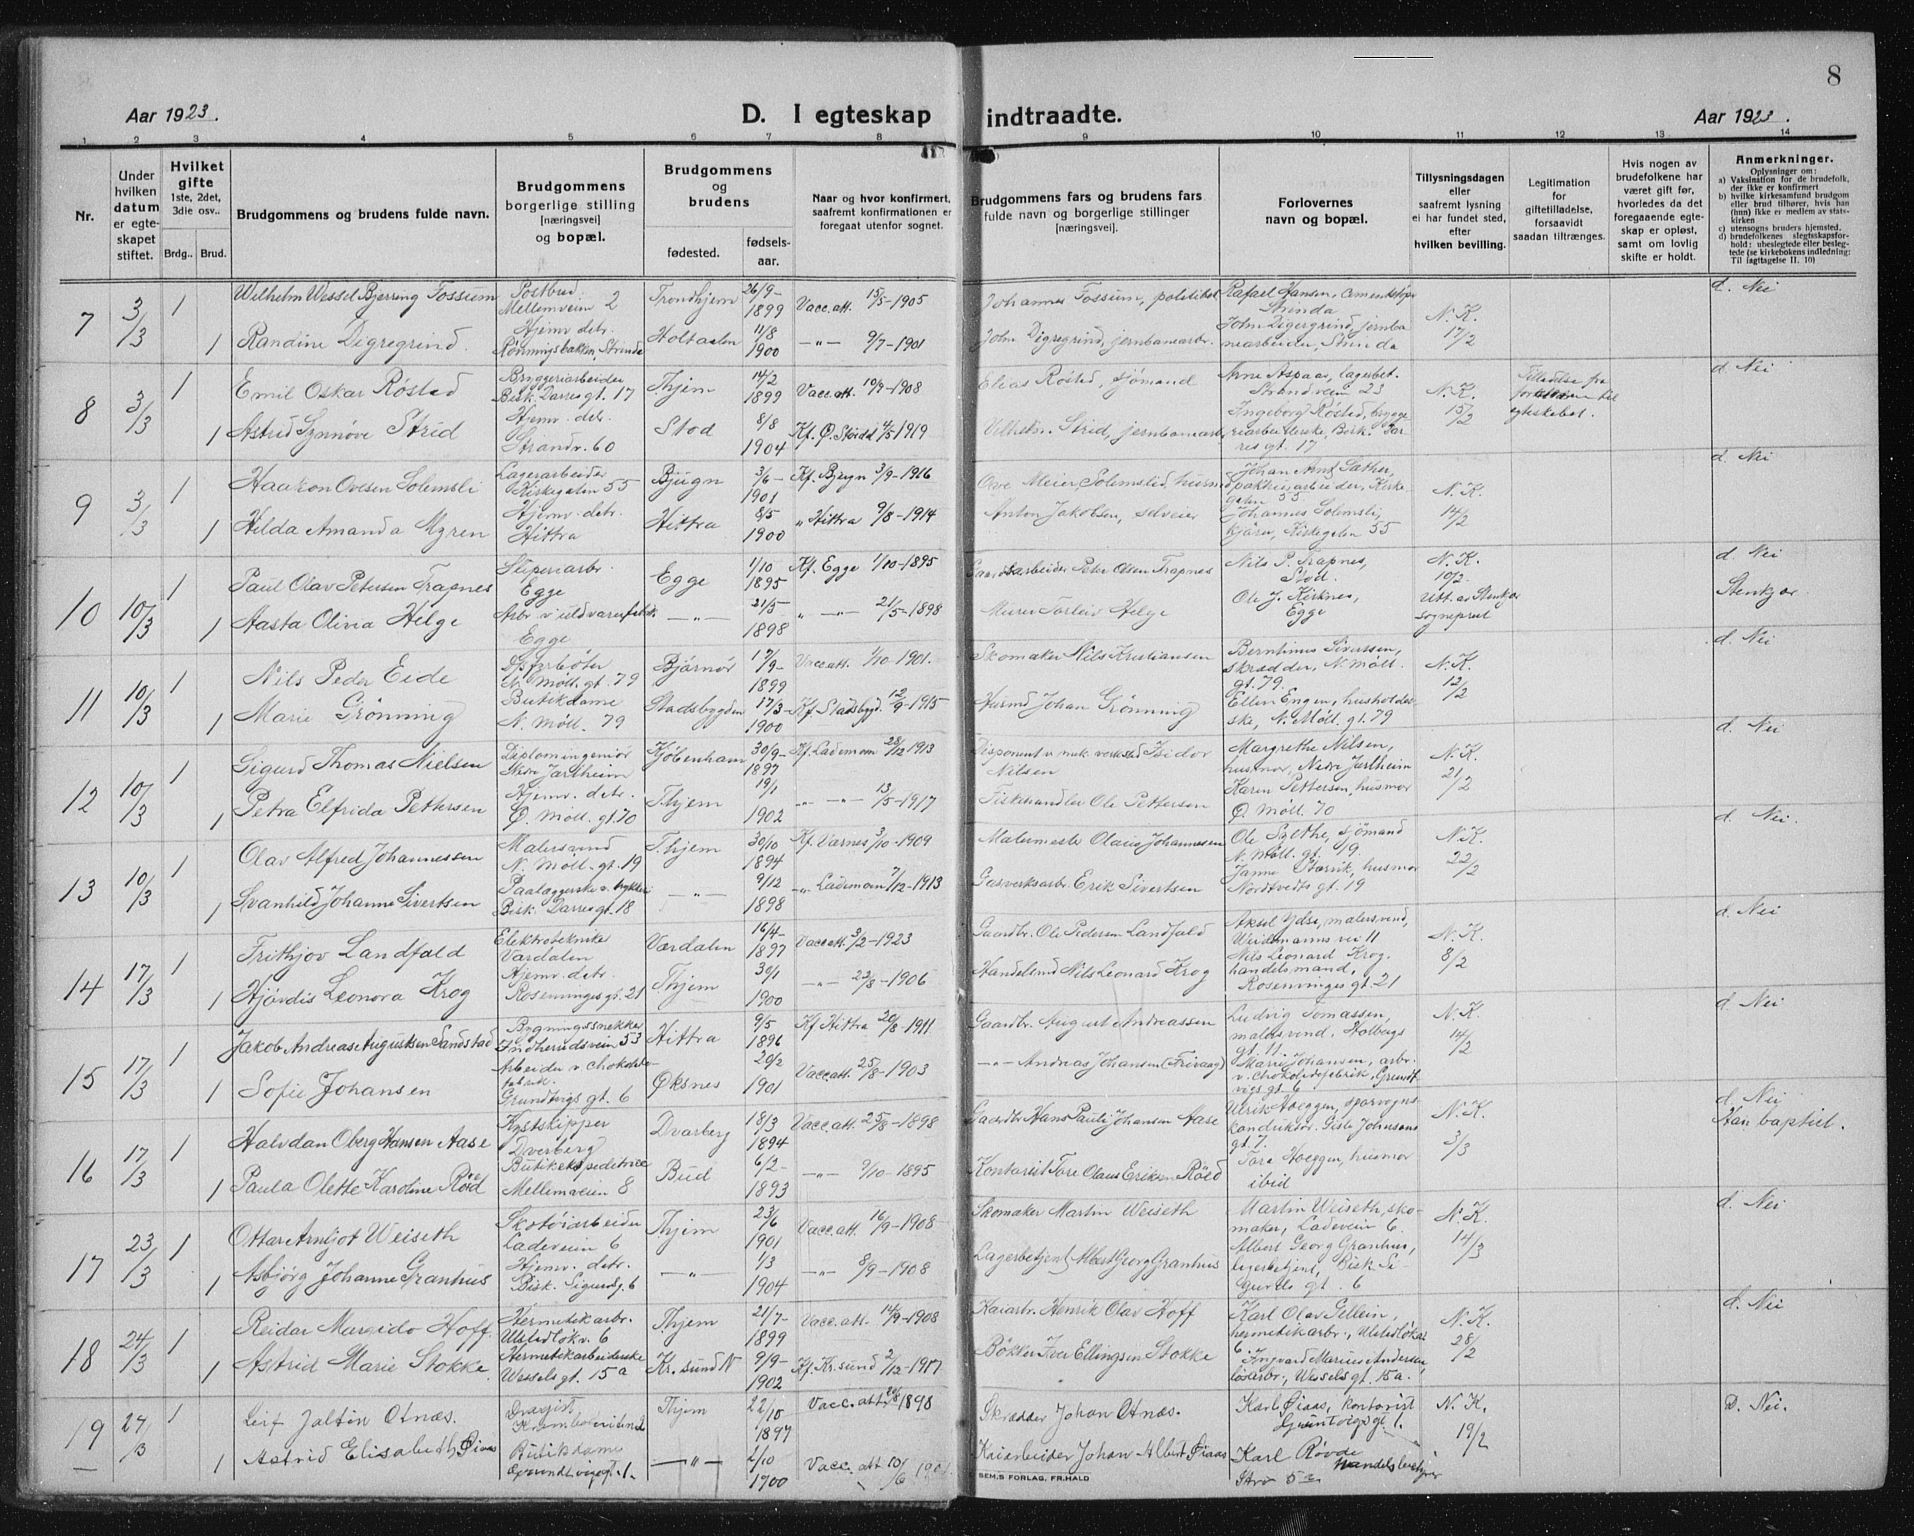 8
Aar 1923.
D. I egteskap indtraadte.
Aar 1923.
1 2 3 4 5 6 7 8 9 10 11 12 13 14
Nr.
Under hvilken datum er egteskapet stiftet.
Hvilket gifte 1ste, 2det, 3die osv..
Brdg.. Brud.
Brudgommens og brudens fulde navn.
Brudgommens borgerlige stilling [næringsvei] og bopæl.
Brudgommens og brudens
fødested.
fødselsaar.
Naar og hvor konfirmert, saafremt konfirmationen er foregaat utenfor sognet.
Brudgommens fars og brudens fars fulde navn og borgerlige stillinger [næringsvei].
Forlovernes navn og bopæl.
Tillysningsdagen eller saafremt lysning ei har fundet sted, efter hvilken bevilling.
Legitimation for giftetilladelse, forsaavidt saadan tiltrænges.
Hvis nogen av brudefolkene har været gift før, hvorledes da det foregaaende egteskap er opløst, samt om lovlig skifte er holdt.
Anmerkninger.
Oplysninger om:
a) Vaksination for de brudefolk, der ikke er konfirmert
b) hvilke kirkesamfund brudgom eller brud tilhører, hvis han (hun) ikke er medlem av statskirken
c) utensogns bruders hjemsted.
d) brudefolkenes slegtsskapsforhold: ubeslegtede eller beslegtede (se kirkebokens indledning: Til Iagttagelse II. 10)
7 3/3 1 Wilhelm Wessel Bjerring Fossum Postbud Mellemveien 2 Trondhjem 26/9-1899 Vacc. att. 15/5-1905 Johannes Fossum, politikst. Rafael Hansen, cementstøper Strinda N. K. 17/2 d. Nei
1 Randine Digregrind. Hjemv. dtr. Rønningsbakken, Strinda Holtaalen 11/8 1900 —"— 9/7-1901 John Digregrind, jernbanearbr. John Digergrind, jernbanearbeider, Strinda
8 3/3 1 Emil Oskar Røstad Bryggeriarbeider Bisk. Darresgt. 17 Thjem 14/2 1899 Vacc. att. 10/9-1908 Elias Røstad, sjømand Arne Aspaas, lagerbet. Strandveien 23 N. K. 15/2 Tilladelse fra til egteskabet. d. Nei
1 Astrid Synnøve Strid Hjemv. dtr. Strandv. 60 Stod 8/8 1904 Kf. Ø. Stördal 4/5 1919 Vilhelm Strid, jernbanearb. Ingeborg Røstad, bryggeriarbeiderske, Bisk. Darres gt. 17
9 3/3 1 Haakon Ovesen Solemsli Lagerarbeider Kirkegaten 55 Bjugn 3/6-1901 Kf. Bjugn 3/9-1916 Ove Meier Solemslid, husmd Johan Arnt Sæther, arbeider, Kirkegaten 55 N. K. 14/2 d. Nei
1 Hilda Amanda Myren Hjemv. dtr. Hittra Hittra 8/5 1900 " Hittra 9/8-1914 Anton Jakobsen, selveier Johannes Solemsli, kjører, Kirkegaten 55
10 10/3 1 Paul Olav Petersen Trapnes Sliperiarbr. Egge Egge 1/10 1895 Kf. Egge 1/10-1895 Gaardsarbeider Peter Olsen Trapnes Nils P. Trapnes, Stod. N. K. 10/2 Utt. av Stenkjær sogneprest d. Nei Stenkjær
1 Aasta Olivia Helge Arb. v. uldvarefabrik. Egge —"— 21/5-1898 " —"— 21/5-1898 Murer Torleiv Helge Ole J. Kirknes, Egge
11 10/3 1 Nils Peder Eide N. Møllgt. 79 Bjørnør 17/9-1899 Vacc. att. 1/10-1901. Skomaker Nils Kristiansen Bernhinus Sivertsen, skrædder, N. Møll. gt. 79. N. K. 12/2 d. Nei
1 Marie Grønning Butikdame N. Møll. 79 Stadsbygden 17/3-1900 Kf. Stadsbygd. 12/9-1915 Husmd Johan Grønning Ellen Engen, husholderske, N. Møll. gt. 79
12 10/3 1 Sigurd Thomas Nielsen Diplomingeniør Nedre Jarlheim Kjøbenhavn 30/9-1897 Kf. Lademoen 28/12 1913 Disponent v. mek. verksted Isidor Nilsen Margrethe Nilsen, husmor, Nedre Jarlheim N. K. 21/2 d. Nei
1 Petra Elfrida Pettersen Hjemv. detr. Ø. Møll. gt. 70 Thjem 19/1 1902 —"— 13/5-1917 Fiskehandler Ole Pettersen Karen Pettersen, husmor Ø. Møll. 70
13 10/3 1 Olav Alfred Johannessen Malersvend N. Møll. gt. 19 Thjem 30/10 1894 Kf. Værnes 3/10-1909 Malermester Olaus Johannessen Ole Sæthe, sjømand N. Møll. gt. 19. N. K. 22/2 d. Nei.
1 Svanhild Johanne Sivertsen Paalæggerske v. trykkeri Bisk. Darresgt. 18 —"— 9/12 1898 " Lademoen 7/12-1913 Gasverksarbr. Erik Sivertsen Janna Størvik, husmor Nordtvedts gt. 19
14 17/3 1 Frithjov Landfald Elektrotekniker Værdalen Værdalen 16/4-1897 Vacc. att. 3/2-1923 Gaardbr. Ole Pedersen Landfald Aksel Ydse, malersvend, Weidemanns vei 11 N. K. 8/2 d. Nei
1 Hjørdis Leonora Krog Hjemv. detr. Rosenningesgt. 21 Thjem 30/1 1900 —"— 22/8-1906 Handelsmd Nils Leonard Krog Nils Leonard Krog, handelsmand, Rosenningesgt. 21
15 17/3 1 Jakob Andreas Augustsen Sandstad Bygningssnekker Indherredsveien 53 Hittra 9/5 1896 Kf. Hittra 20/8-1911 Gaardbr. August Andreassen Ludvig Tomassen, malersvend. Holbergs gt. 11. N. K. 14/2 d. Nei
1 Sofie Johansen Arbeider v. chokoladefabrik. Grundtvigs gt. 6 Øksnes 20/2 1901 Vacc. att. 25/8-1903 —"— Andreas Johansen (Frivaag) Marie Johansen, arbr. v. chokoladefabrik, Grundtvigs gt. 6
16 17/3 1 Halvdan Oberg Hansen Aase Kystskipper Dverberg Dvarberg 18/3 1894 Vacc. att. 25/8-1898 Gaardbr Hans Pauli Johansen Aase Ulrik Hoeggen, sporvognskonduktør. Gisle Johnsons gt. 7. N. K. 3/3 d. Nei Han baptist.
1 Paula Olette Karoline Röed Butikekspeditrice Mellemveien 8 Bud 6/2-1893 —"— 9/10-1895 Kontorist Tore Olaus Eriksen Röed Tora Hoeggen, husmor ibid
17 23/3 1 Ottar Arnljot Weiseth Skotöiarbeider Ladeveien 6 Thjem 23/6 1901 Vacc. att. 16/9-1908 Skomaker Martin Weiseth Martin Weiseth, skomaker, Ladeveien 6. N. K. 14/3 d. Nei
1 Asbjørg Johanne Granhus Hjemv. detr. Bisk. Sigurdsg. 6 —"— 1/3 1904 —"— 8/9-1908 Lagerbetjent Albert Georg Granhus Albert Georg Granhus, lagerbetjent, Bisk. Sigurds gt. 6
18 24/3 1 Reidar Margido Hoff Hermetikarbr. Ulstidløkv. 6 Thjem 21/7-1899 Vacc. att. 14/9-1908 Kaiarbr. Henrik Olav Hoff Karl Olav Gillein, hermetikarbr., Ulstidløkv. 6. N. K. 28/2 d. Nei
1 Astrid Marie Stokke. Hermetikarbeiderske Wesselsgt. 15a Kr.sund N 9/9-1902 Kf. Kr.sund 2/12-1917 Bøkker Iver Ellingsen Stokke Ingvard Marius Andersen, løsarbr., Wesselsgt. 15a.
19 24/3 1 Leif Jaltin Otnæs. Thjem 22/10-1897 Vacc. att. 20/8 1898 Skrædder Johan Otnæs. Karl Øiaas, kontorist Gruntvigsgt 1. N. K. 19/2 D. Nei.
1 Astrid Elisabeth Øiaas Butikdame Grundtvigsgt. 1. —"— 2/10 1900 Vacc. att 10/6 1901 Kaiarbeider Johan Albert Øiaas Karl Røvde Handelsbetjener
SEM.S FORLAG, FR.HALD